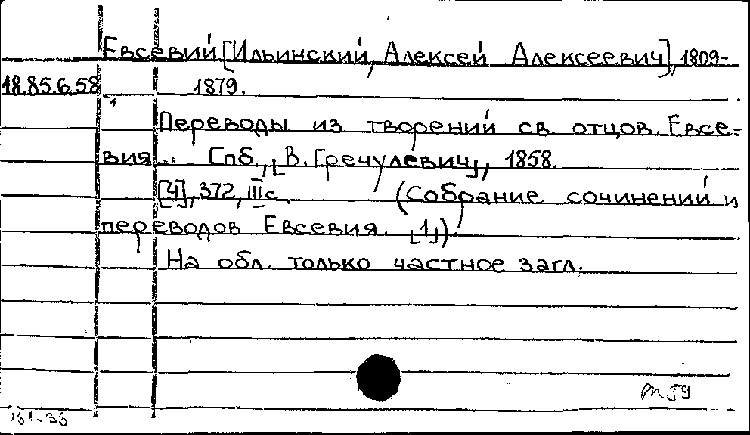 Евсевий [Ильинский, Алексей Алексеевич], 1809-
18.85.6.58 1879.
Переводы из творений св. отцов Евсе-
вия.. Спб., [В. Гречулевич], 1858.
[4], 372, III с. (Собрание сочинений и
переводов Евсевия. [1]).
На обл. только частное загл.